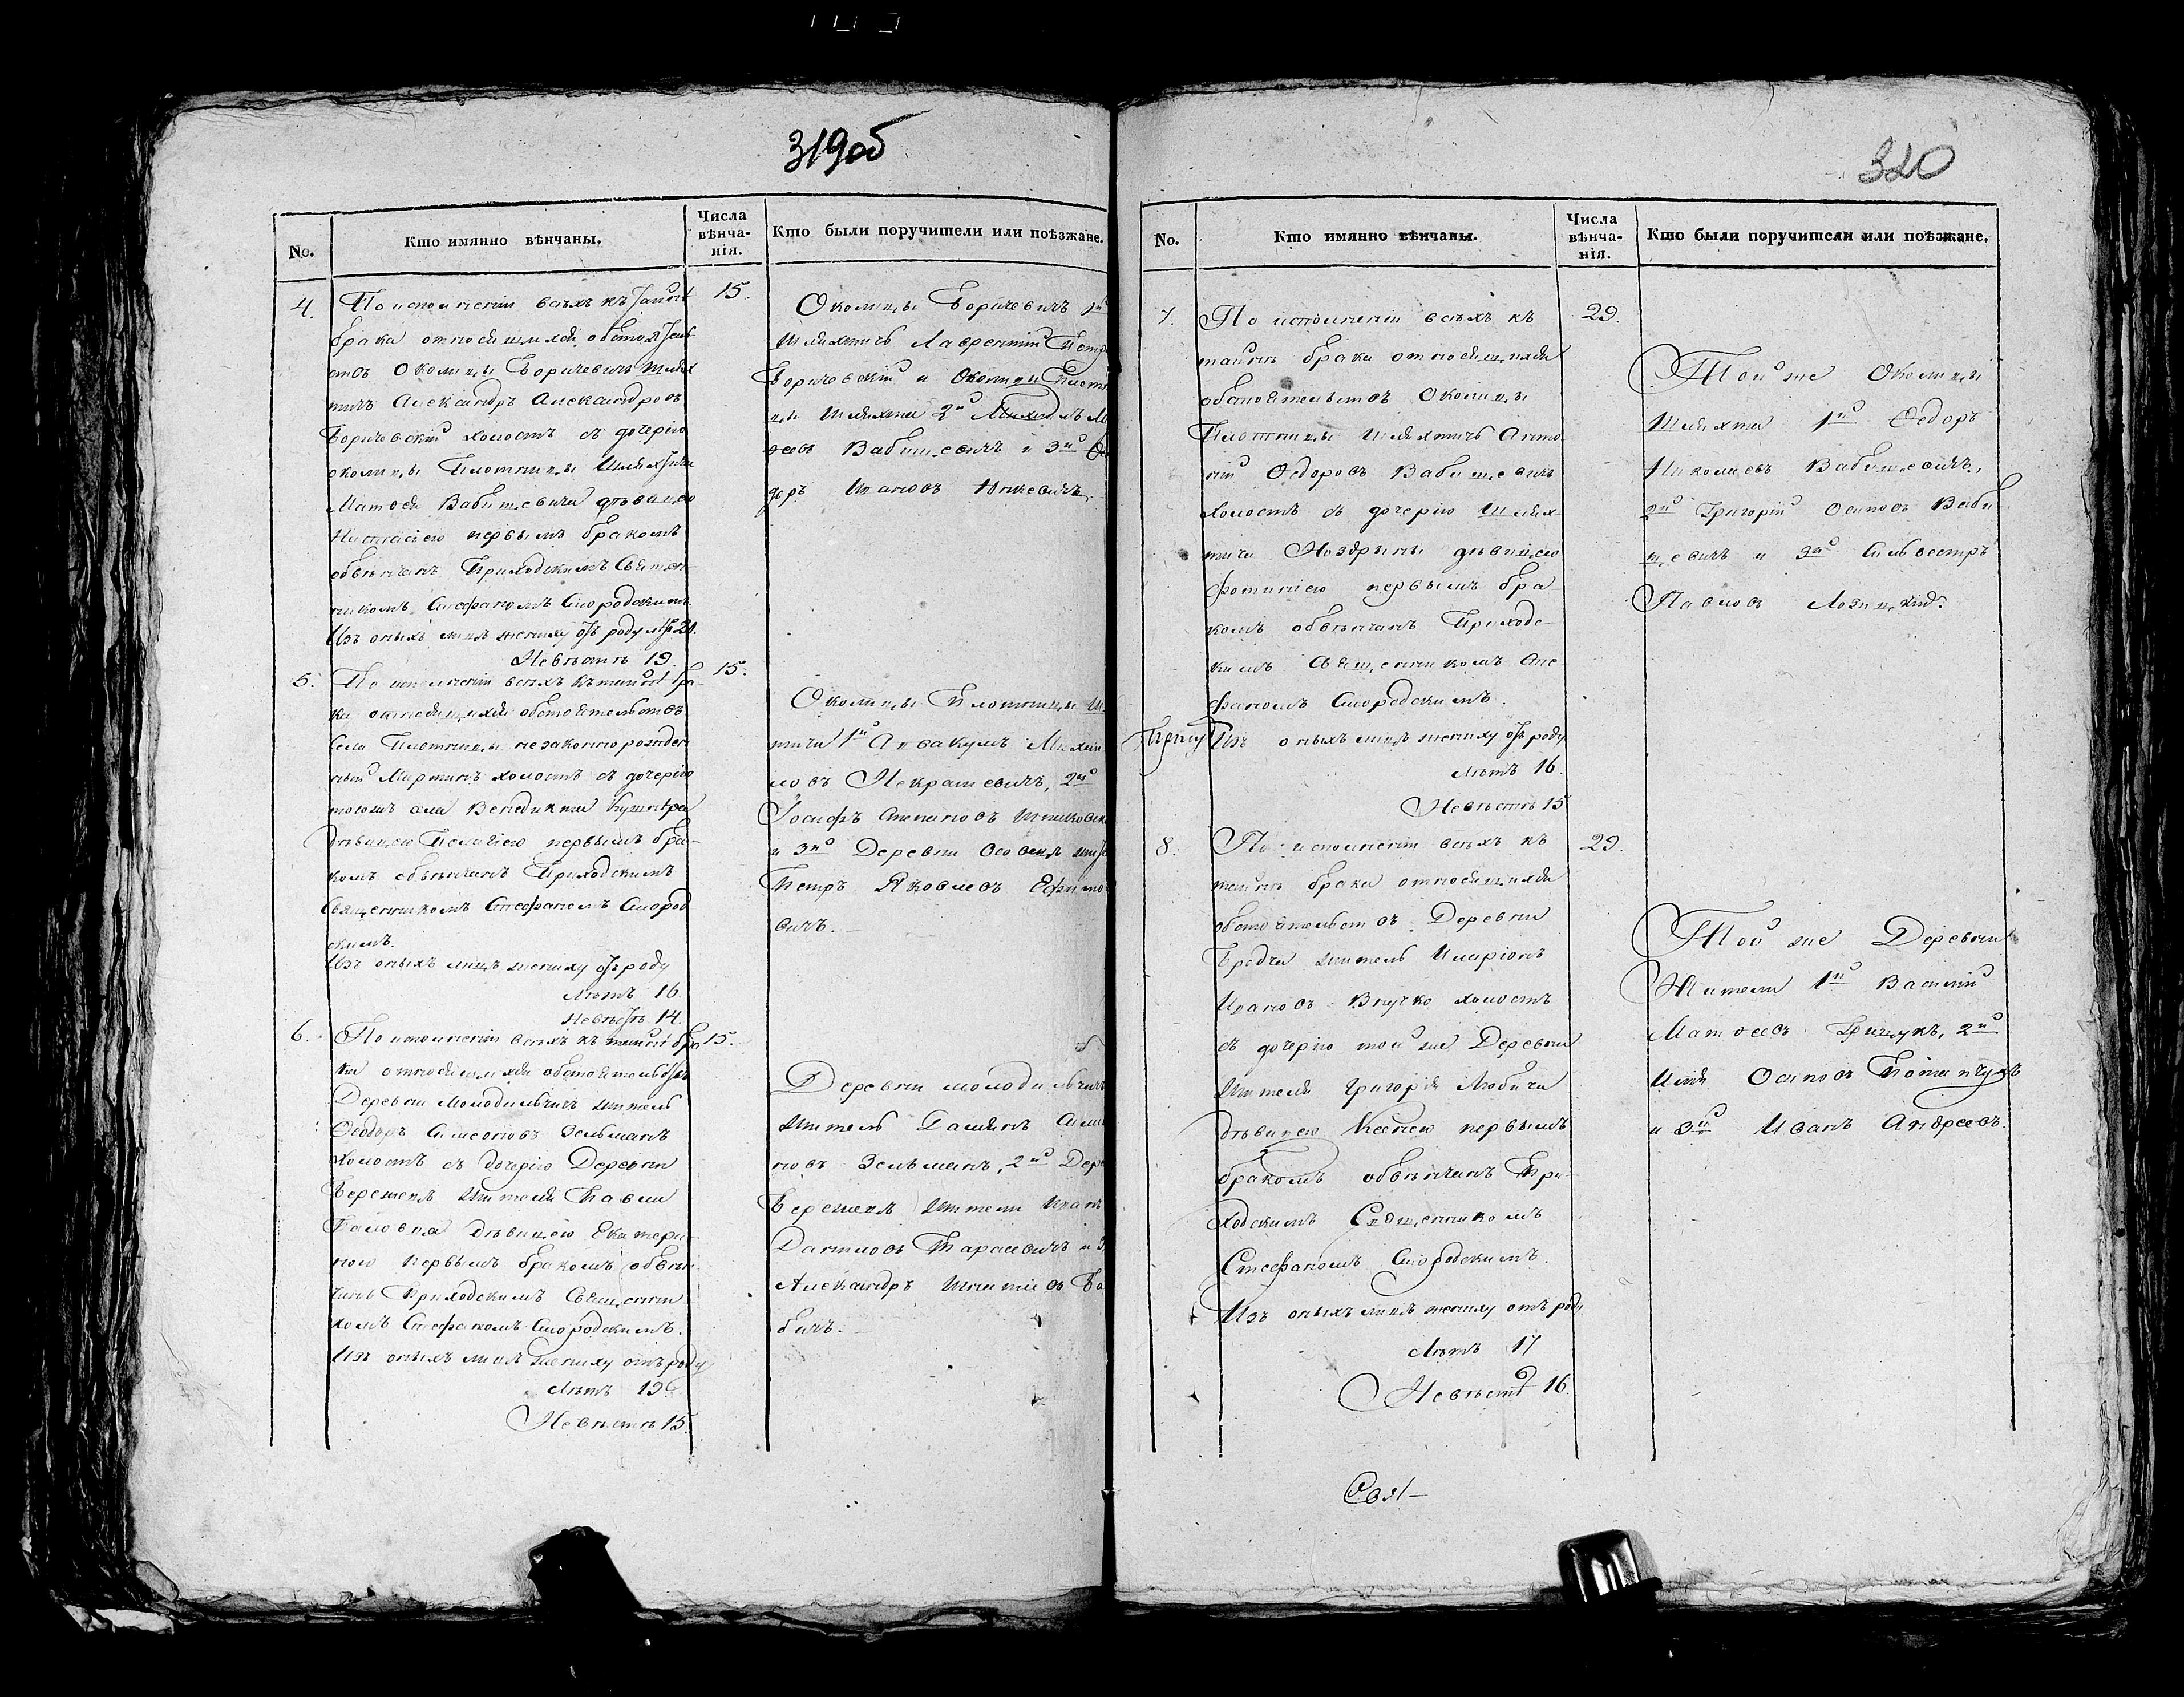 319об
No.
Кто имянно вѣнчаны.
Числа
вѣнча-
нія.
Кто были поручители или поѣзжане.
4.
По исполненіи всѣхъ къ тайнѣ
брака относящихся обстоятель
ствъ Околицы Боричевичъ шлях
тичъ Александръ Александровъ
Боричевскій холостъ съ дочерію
околицы Плотницы Шляхтича
Матѳея Вабищевича дѣвицею
Настасіею первымъ бракомъ
обвѣнчанъ Приходскимъ Священ
никомъ Стефаномъ Смородскимъ
Изъ оныхъ лицъ жениху отъ роду лѣтъ 21.
Невѣстѣ 19.
15.
Околицы Боричевичъ 1й
Шляхтичъ Лаврентій
Боричевскій и Околицы
цы Шляхта 2й
ѳеевъ Вабищевичъ и 3й
доръ Ивановъ
5.
По исполненіи всѣхъ къ тайнѣ бра
ка относящихся обстоятельствъ
Села Плотницы незаконнорожден
ный Мартинъ холостъ съ дочерію
тогожъ села Венедикта
дѣвицею Пелагіею первымъ бра-
комъ обвѣнчанъ Приходскимъ
Священникомъ Стефаномъ Смород
скимъ.
Изъ оныхъ лицъ жениху отъ роду
Лѣтъ 16.
Невѣстѣ 14.
15.
Околицы Плотницы
тичи 1й Аввакумъ
ловъ Некрашевичъ, 2й
Іосифъ Степановъ
и 3й Деревни
Петръ Яковлевъ Ефимо
вичъ.
6.
По исполненіи всѣхъ къ тайнѣ бра
ка относящихся обстоятельствъ
Деревни Молодильчичъ житель
Ѳеодоръ Симеоновъ Зельманъ
Холостъ съ дочерію Деревни
Бережецъ жителя Павла
дѣвицею Екатери
ною первымъ бракомъ обвѣн
чанъ Приходскимъ Священни
комъ Стефаномъ Смородскимъ.
Изъ оныхъ лицъ жениху отъ роду
Лѣтъ 19
Невѣстѣ 15.
15.
Деревни молодильчичъ
Житель Дамянъ
новъ Зельманъ, 2й
Бережецъ жители Иванъ
Даниловъ Тарасевичъ и
Александръ Игнатіевъ
бичъ.
320
No.
Кто имянно вѣнчаны.
Числа
вѣнча-
нія.
Кто были поручители или поѣзжане.
7.
По исполненіи всѣхъ къ
тайнѣ брака относящихся
обстоятельствъ Околицы
Плотницы Шляхтичъ Анто
ній Ѳедоровъ Вабищевичъ
холостъ съ дочерію Шлях
тича Ноздрины дѣвицею
Фотиніею первымъ бра
комъ обвѣнчанъ Приходс-
кимъ Священникомъ Сте
фаномъ Смородскимъ.
Изъ оныхъ лицъ жениху отъ роду
Лѣтъ 16.
Невѣстѣ 15
29.
Той же Околицы
Шляхта 1й Ѳедоръ
Николаевъ Вабищевичъ,
2й Григорій Осиповъ Ваби
щевичъ и 3й Сильвестръ
Павловъ Лозицкій.
8.
По исполненіи всѣхъ къ
тайнѣ брака относящихся
обстоятельствъ Деревни
Бродча житель Иларіонъ
Ивановъ Внучко холостъ
съ дочерію той же Деревни
Жителя Григорія Любича
дѣвицею Ксеніею первымъ
бракомъ обвѣнчанъ При-
ходскимъ Священникомъ
Стефаномъ Смородскимъ.
Изъ оныхъ лицъ жениху отъ роду
Лѣтъ 17
Невѣстѣ 16.
29.
Той же Деревни
Жители 1й Василій
Матѳеевъ Грицукъ, 2й
Илія Осиповъ
и 3й Иванъ Андреевъ.